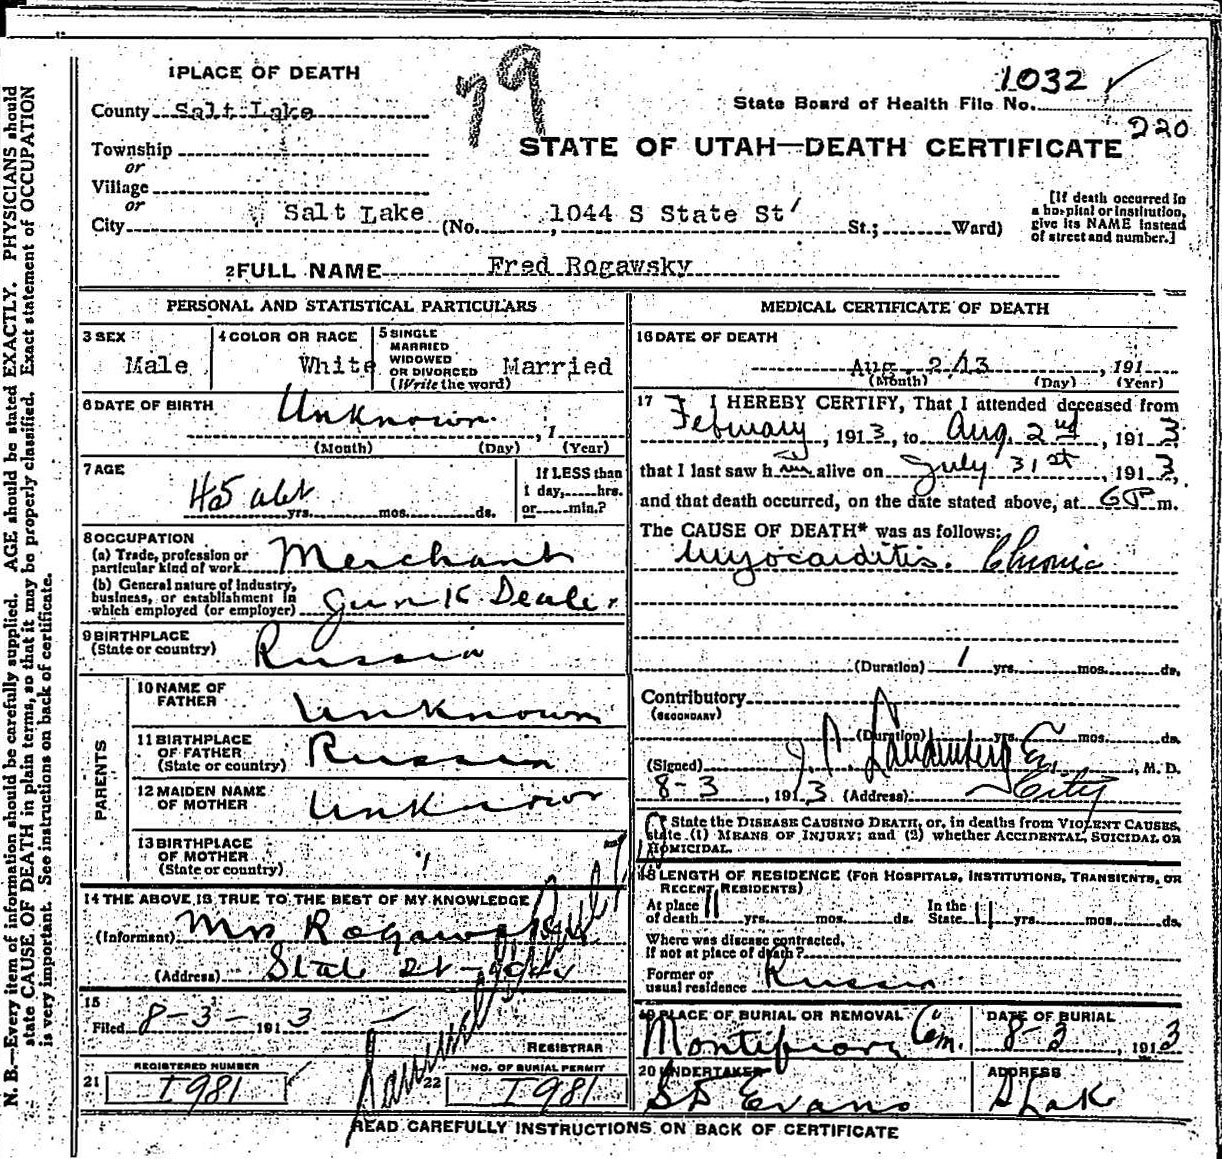 N. B.—Every item of information should be carefully supplied. AGE should be stated EXACTLY. PHYSICIANS should
state CAUSE OF DEATH in plain terms, so that it may be properly classified. Exact statement of OCCUPATION
is very important. See instructions on back of certificate.
1 PLACE OF DEATH
County Salt Lake
Township
or
Village
or
City Salt Lake (No. 1044 S State St St.; Ward)
79
1032
State Board of Health File No.
220
STATE OF UTAH—DEATH CERTIFICATE
[If death occurred in
a hospital or institution,
give its NAME instead
of street and number.]
2 FULL NAME Fred Rogawsky
PERSONAL AND STATISTICAL PARTICULARS
3 SEX
Male
4 COLOR OR RACE
White
5 SINGLE
MARRIED
WIDOWED
OR DIVORCED
(Write the word)
Married
6 DATE OF BIRTH
Unknown , 1
(Month) (Day) (Year)
7 AGE
45 abt
yrs. mos. ds.
If LESS than
1 day, hrs.
or min.?
8 OCCUPATION
(a) Trade, profession or
particular kind of work Merchant
(b) General nature of industry,
business, or establishment in
which employed (or employer) Junk Dealer
9 BIRTHPLACE
(State or country) Russia
PARENTS
10 NAME OF
FATHER Unknown
11 BIRTHPLACE
OF FATHER
(State or country) Russia
12 MAIDEN NAME
OF MOTHER Unknown
13 BIRTHPLACE
OF MOTHER
(State or country)
14 THE ABOVE IS TRUE TO THE BEST OF MY KNOWLEDGE
(Informant) Mrs Rogawsky
(Address) State St
15
Filed 8-3- 1913
REGISTRAR
REGISTERED NUMBER
21 1981
NO. OF BURIAL PERMIT
22 1981
MEDICAL CERTIFICATE OF DEATH
16 DATE OF DEATH
Aug. 2/13 , 191
(Month) (Day) (Year)
17 I HEREBY CERTIFY, That I attended deceased from
February , 1913, to Aug. 2nd , 1913
that I last saw him alive on July 31st , 1913,
and that death occurred, on the date stated above, at 6 P m.
The CAUSE OF DEATH* was as follows:
Myocarditis. Chronic
(Duration) 1 yrs. mos. ds.
Contributory
(SECONDARY)
(Duration) yrs. mos. ds.
(Signed) , M. D.
8-3 , 1913 (Address) City
* State the DISEASE CAUSING DEATH, or, in deaths from VIOLENT CAUSES,
state (1) MEANS OF INJURY; and (2) whether ACCIDENTAL, SUICIDAL OR
HOMICIDAL.
18 LENGTH OF RESIDENCE (FOR HOSPITALS, INSTITUTIONS, TRANSIENTS, OR
RECENT RESIDENTS)
At place
of death 11 yrs. mos. ds.
In the
State 11 yrs. mos. ds.
Where was disease contracted,
if not at place of death?
Former or
usual residence Russia
19 PLACE OF BURIAL OR REMOVAL
Montifiory Cem.
DATE OF BURIAL
8-3 , 1913
20 UNDERTAKER
S D Evans
ADDRESS
S Lak
READ CAREFULLY INSTRUCTIONS ON BACK OF CERTIFICATE